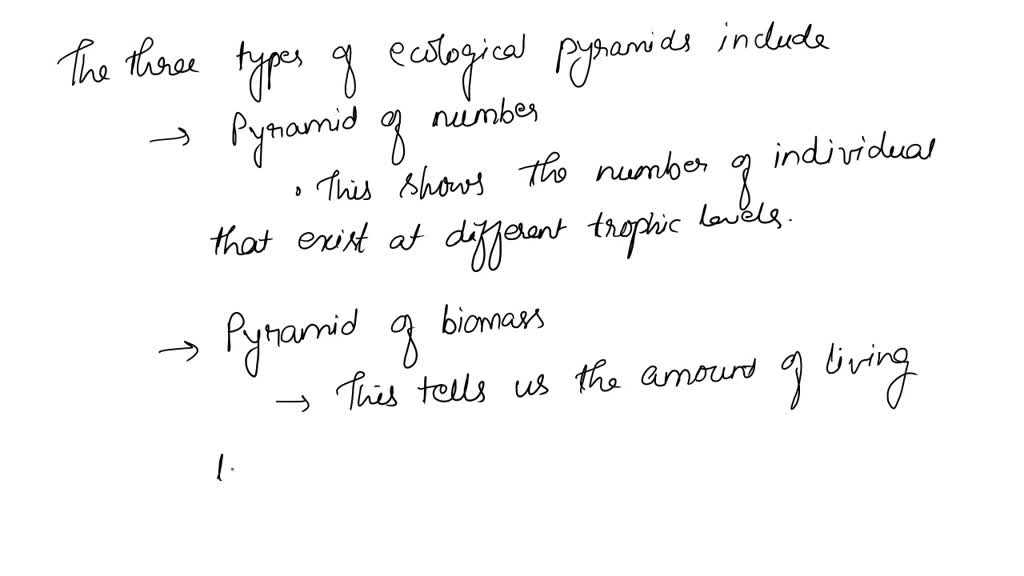 The three types of ecological pyramids include
→ Pyramid of number
• This shows the number of individual
that exist at different trophic levels.
→ Pyramid of biomass
→ This tells us the amount of living